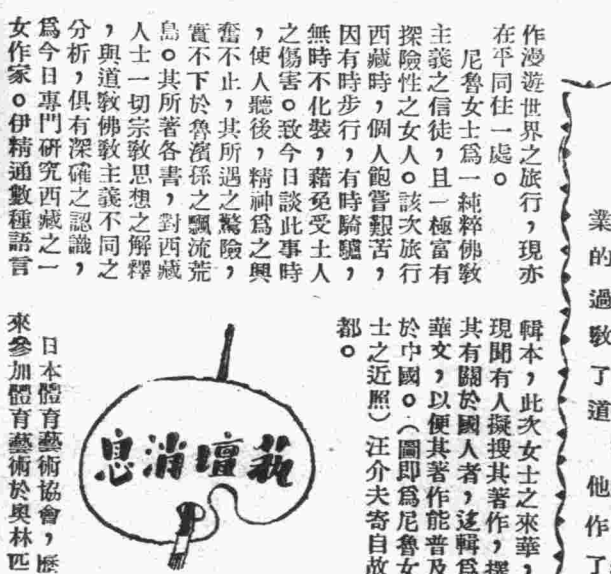 業的過敎了道 他作了
作漫遊世界之旅行，現亦
在平同住一處。
尼魯女士爲一純粹佛敎
主義之信徒，且一極富有
探險性之女人。該次旅行
西藏時，個人飽嘗艱苦，
因有時步行，有時騎驢，
無時不化裝，藉免受土人
之傷害。致今日談此事時
，使人聽後，精神爲之興
奮不止，其所遇之驚險，
實不下於魯濱孫之飄流荒
島。其所著各書，對西藏
人士一切宗敎思想之解釋
，與道敎佛敎主義不同之
分析，俱有深確之認識，
爲今日專門研究西藏之一
女作家。伊精通數種語言
輯本，此次女士之來華，
現聞有人擬搜其著作，擇
其有關於國人者，迻輯爲
華文，以便其著作能普及
於中國。（圖即爲尼魯女
士之近照）汪介夫寄自故
都。
藝壇消息
日本體育藝術協會，歷
來參加體育藝術於奧林匹